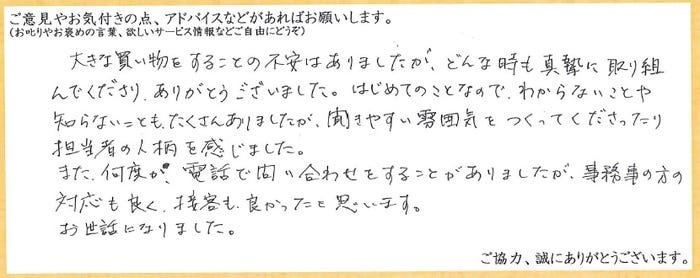 ご意見やお気付きの点、アドバイスなどがあればお願いします。
(お叱りやお褒めの言葉、欲しいサービス情報などご自由にどうぞ)
大きな買い物をすることの不安はありましたが、どんな時も真摯に取り組
んでくださり、ありがとうございました。はじめてのことなので、わからないことや
知らないことも、たくさんありましたが、聞きやすい雰囲気をつくってくださったり
担当者の人柄を感じました。
また、何度か、電話で問い合わせをすることがありましたが、事務事の方の
対応も良く、接客も良かったと思います。
お世話になりました。
ご協力、誠にありがとうございます。